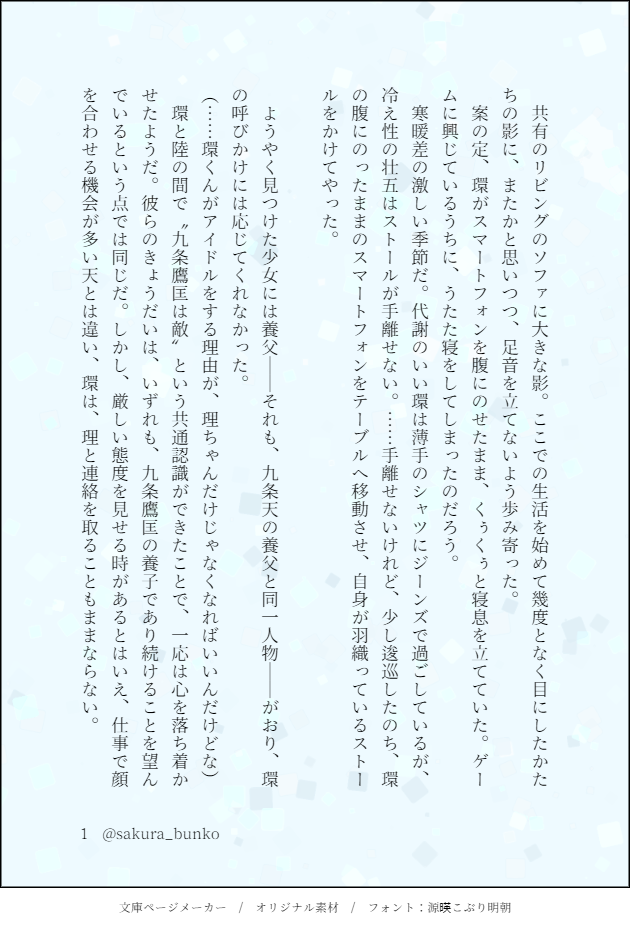 共有のリビングのソファに大きな影。ここでの生活を始めて幾度となく目にしたかた
ちの影に、またかと思いつつ、足音を立てないよう歩み寄った。
　案の定、環がスマートフォンを腹にのせたまま、くぅくぅと寝息を立てていた。ゲー
ムに興じているうちに、うたた寝をしてしまったのだろう。
　寒暖差の激しい季節だ。代謝のいい環は薄手のシャツにジーンズで過ごしているが、
冷え性の壮五はストールが手離せない。……手離せないけれど、少し逡巡したのち、環
の腹にのったままのスマートフォンをテーブルへ移動させ、自身が羽織っているストー
ルをかけてやった。
　ようやく見つけた少女には養父――それも、九条天の養父と同一人物――がおり、環
の呼びかけには応じてくれなかった。
(……環くんがアイドルをする理由が、理ちゃんだけじゃなくなればいいんだけどな)
　環と陸の間で〝九条鷹匡は敵〟という共通認識ができたことで、一応は心を落ち着か
せたようだ。彼らのきょうだいは、いずれも、九条鷹匡の養子であり続けることを望ん
でいるという点では同じだ。しかし、厳しい態度を見せる時があるとはいえ、仕事で顔
を合わせる機会が多い天とは違い、環は、理と連絡を取ることもままならない。
1　@sakura_bunko
文庫ページメーカー　/　オリジナル素材　/　フォント：源暎こぶり明朝